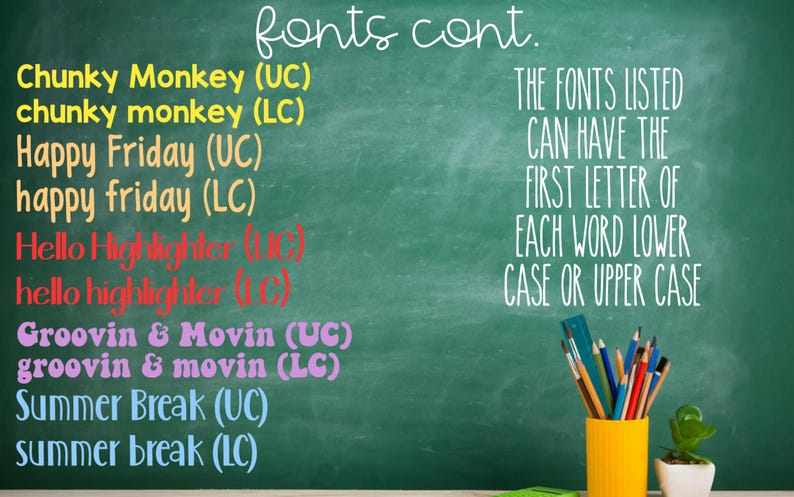 fonts cont.
Chunky Monkey (UC)
chunky monkey (LC)
Happy Friday (UC)
happy friday (LC)
Hello Highlighter (UC)
hello highlighter (LC)
Groovin & Movin (UC)
groovin & movin (LC)
Summer Break (UC)
summer break (LC)
THE FONTS LISTED
CAN HAVE THE
FIRST LETTER OF
EACH WORD LOWER
CASE OR UPPER CASE